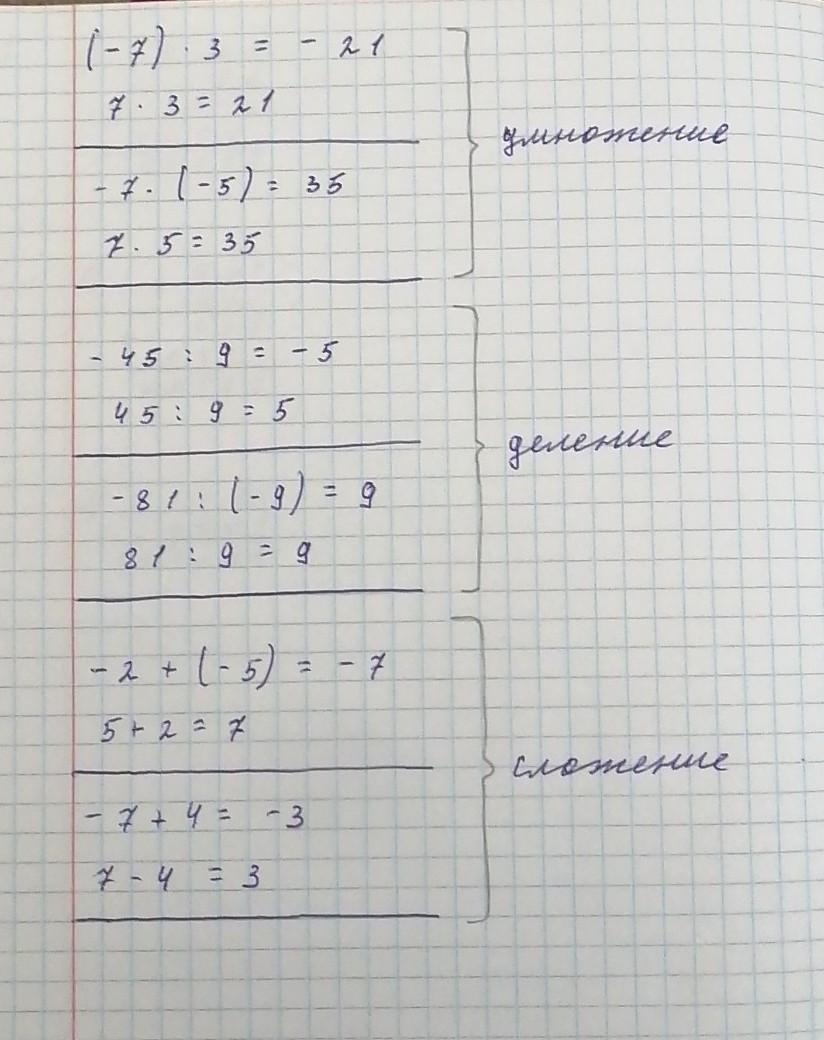 (-7) · 3 = - 21
7 · 3 = 21
умножение
- 7 · (-5) = 35
7 · 5 = 35
- 45 : 9 = - 5
45 : 9 = 5
деление
- 81 : (-9) = 9
81 : 9 = 9
- 2 + (-5) = - 7
5 + 2 = 7
сложение
- 7 + 4 = -3
7 - 4 = 3